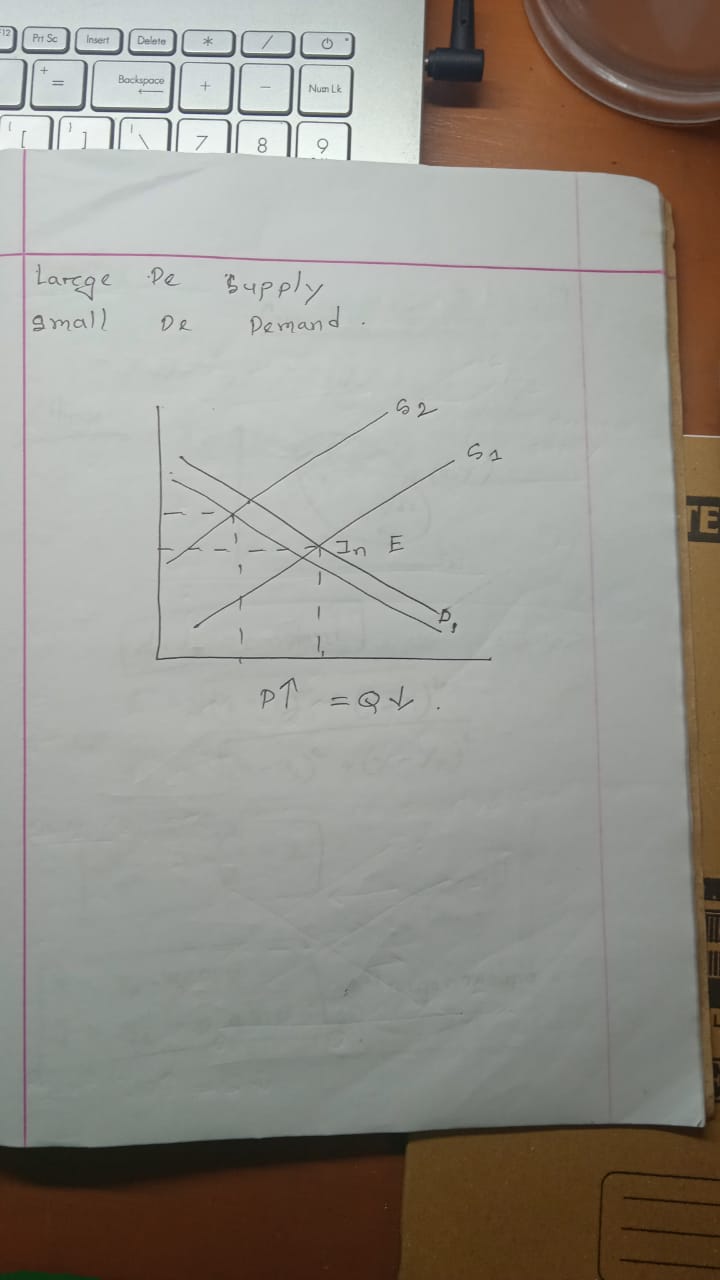 F12
Prt Sc
Insert
Delete
*
/
+
=
Backspace
+
-
Num Lk
{
[
}
]
|
\
7
8
9
Larege De Supply
Small De Demand.
S2
S1
In E
D1
P↑ = Q↓.
TE